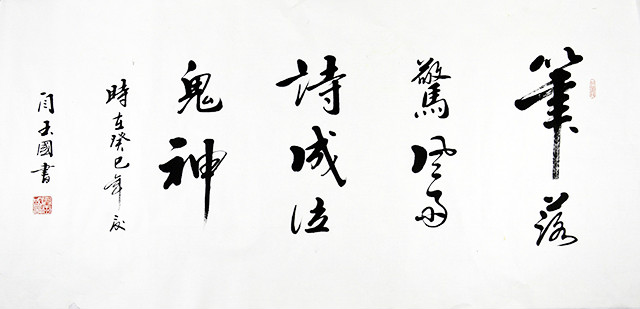 筆落
驚風雨
詩成泣
鬼神
時在癸巳年夏
闫玉國書